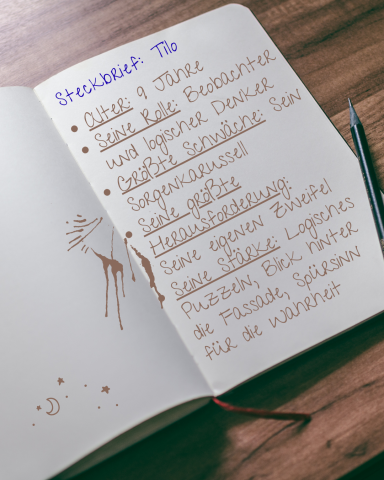 Steckbrief: Tilo
• Alter: 9 Jahre
• Seine Rolle: Beobachter
und logischer Denker
• Größte Schwäche: Sein
Sorgenkarussell
• Seine größte
Herausforderung:
Seine eigenen Zweifel
Seine Stärke: Logisches
Puzzeln, Blick hinter
die Fassade, Spürsinn
für die Wahrheit